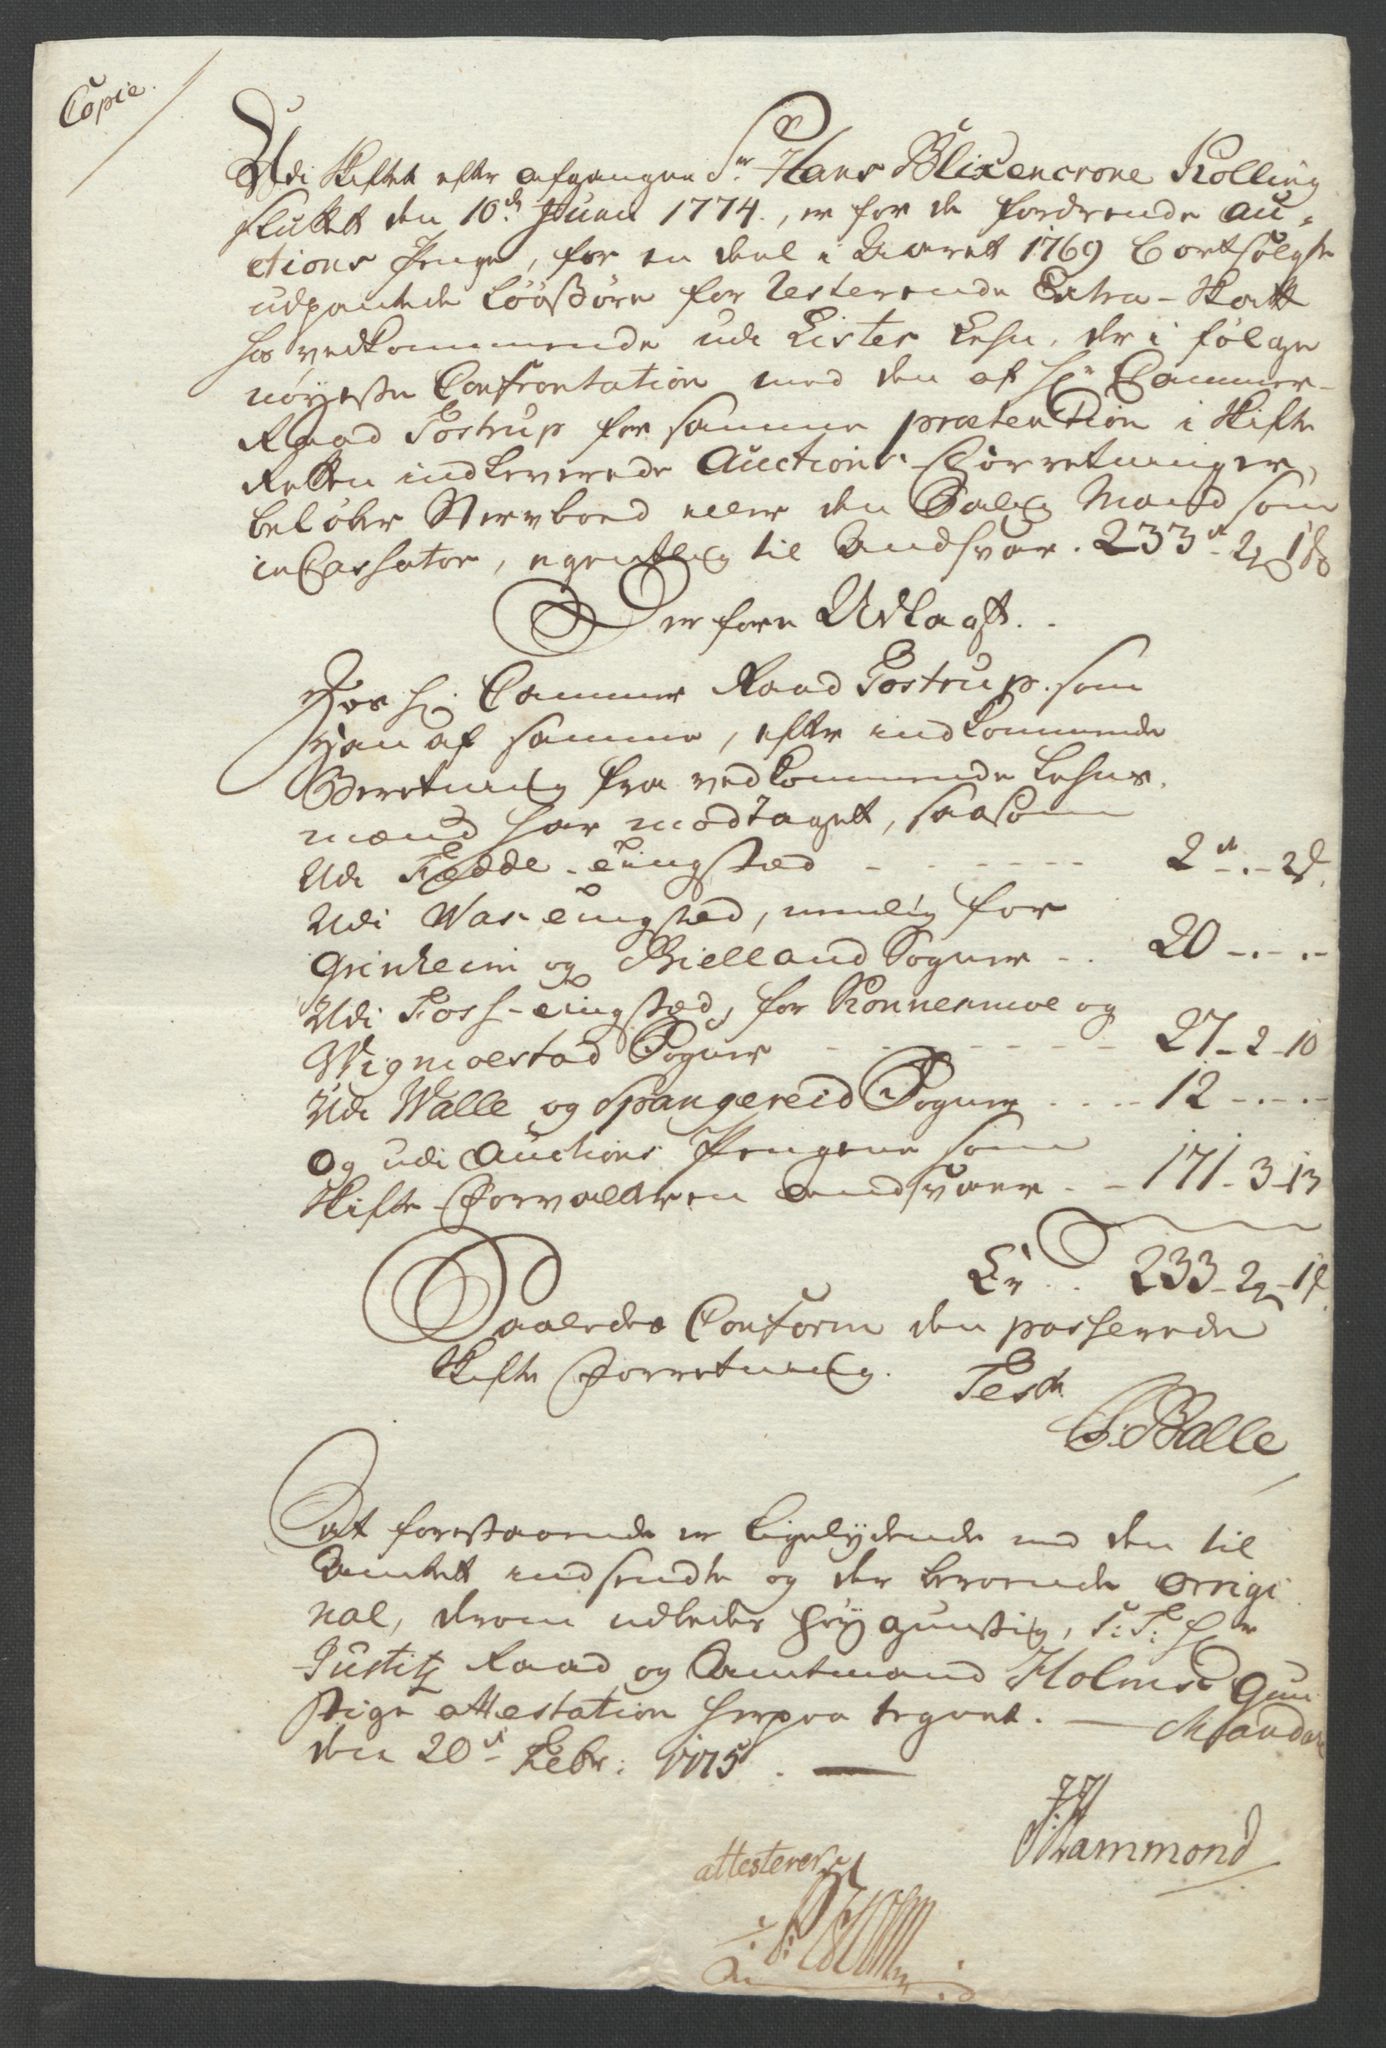 Copie.
Udi Skiftet efter afgangne Sr. Hans Blixencrone Kolling
Sluttet den 10de Juni 1774., er for de fordrende Au-
ctions Penge, for en deel i Aaret 1769 bortsolgte
udpantede Løösøre for resterende Extra-Skatt
hos vedkommende udi Lister Lehn, der i følge
nøyeste Confrontation med den af Hr. Cammer-
Raad Tostrup for samme prætention i Skifte
Retten indleverede Auctions-Forretninger,
beløber Stervboed eller den Salig Mand som
inCassator, egentlig til Andsvar. 233 rd 2 1 s
Derfore Udlagt.
Hos Hr. Cammer Raad Tostrup. som
Han af samme, efter indkommende
Beretning fra vedkommende Lehns-
mænd har modtaget, saasom
Udi Fedde-tingsted 2 rd - . - 2 s.
Udi Waas-tingsted, nemlig for
Grinheim og Bielland Sogner 20 - . - . -
Udi Foss-tingsted, for Konnesmoe og
Wigmoestad Sogner 27 - 2 - 10
Udi Walle og Spangereid Sogner 12 - . - . -
Og udi Auctions Pengene som
Skifte-Forvalteren andsvaer 171 - 3 - 13
Er 233 - 2 - 1 s.
Saaledes Conform den passerede
Skifte Forretning. Test.
Balle
At forestaaende er ligelydende med den til
Amtet indsendte og der beroende orrigi-
nal, derom udbedes høygunstig, S: T: Hr
Justitz Raad og Amtmand Holms gun-
stige attestation herpaa tegnet. — Mandal
den 20de Febr: 1775. —
Hammond
attesterer
Holm